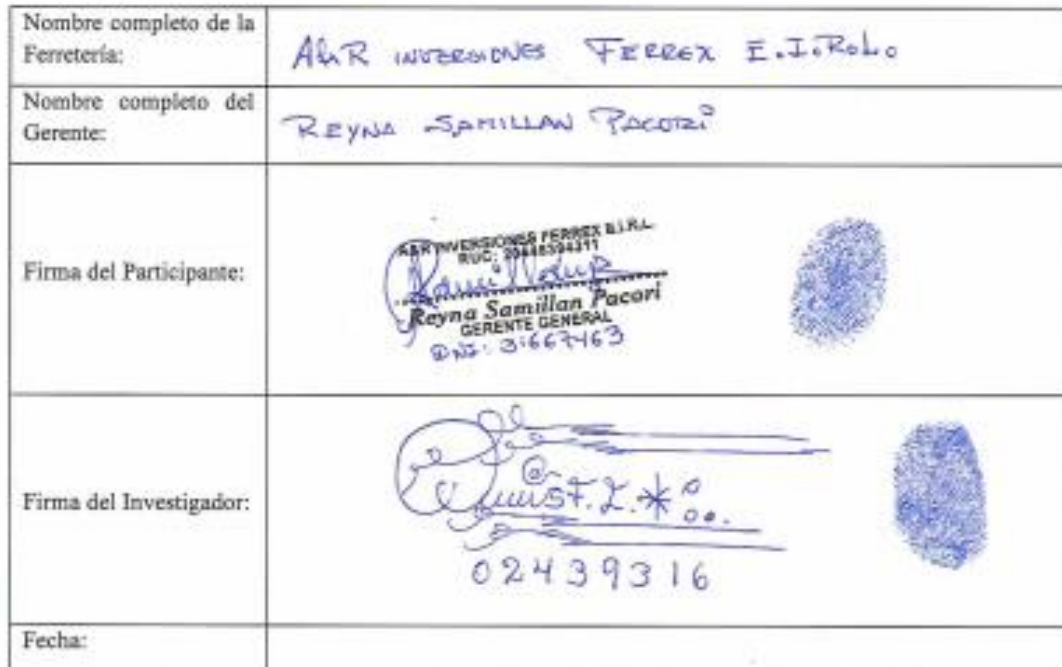 Nombre completo de la
Ferretería:
A&R INVERSIONES FERREX E.I.R.L.
Nombre completo del
Gerente:
REYNA SAMILLAN PACORI
Firma del Participante:
A&R INVERSIONES FERREX E.I.R.L.
RUC: 20448394311
Reyna Samillan Pacori
GERENTE GENERAL
DNI: 31667463
Firma del Investigador:
F. Z.
02439316
Fecha: